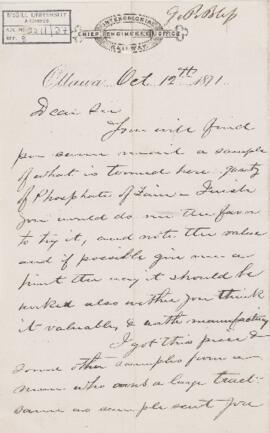 McGILL UNIVERSITY
ARCHIVES
INTERCOLONIAL
CHIEF ENGINEER'S OFFICE
RAILWAY
Ottawa Oct 12th 1871
Dear Sir
You will find
per same mail a sample
of what is termed here
of Phosphate of Lime – I wish
you would do me the favor
to try it, and note the value
and if possible give me a
hint the way it should be
worked also whether you think
it valuable, & worth manufacturing
I got this piece &
some other samples from a
man who owns a large tract
same as sample sent you